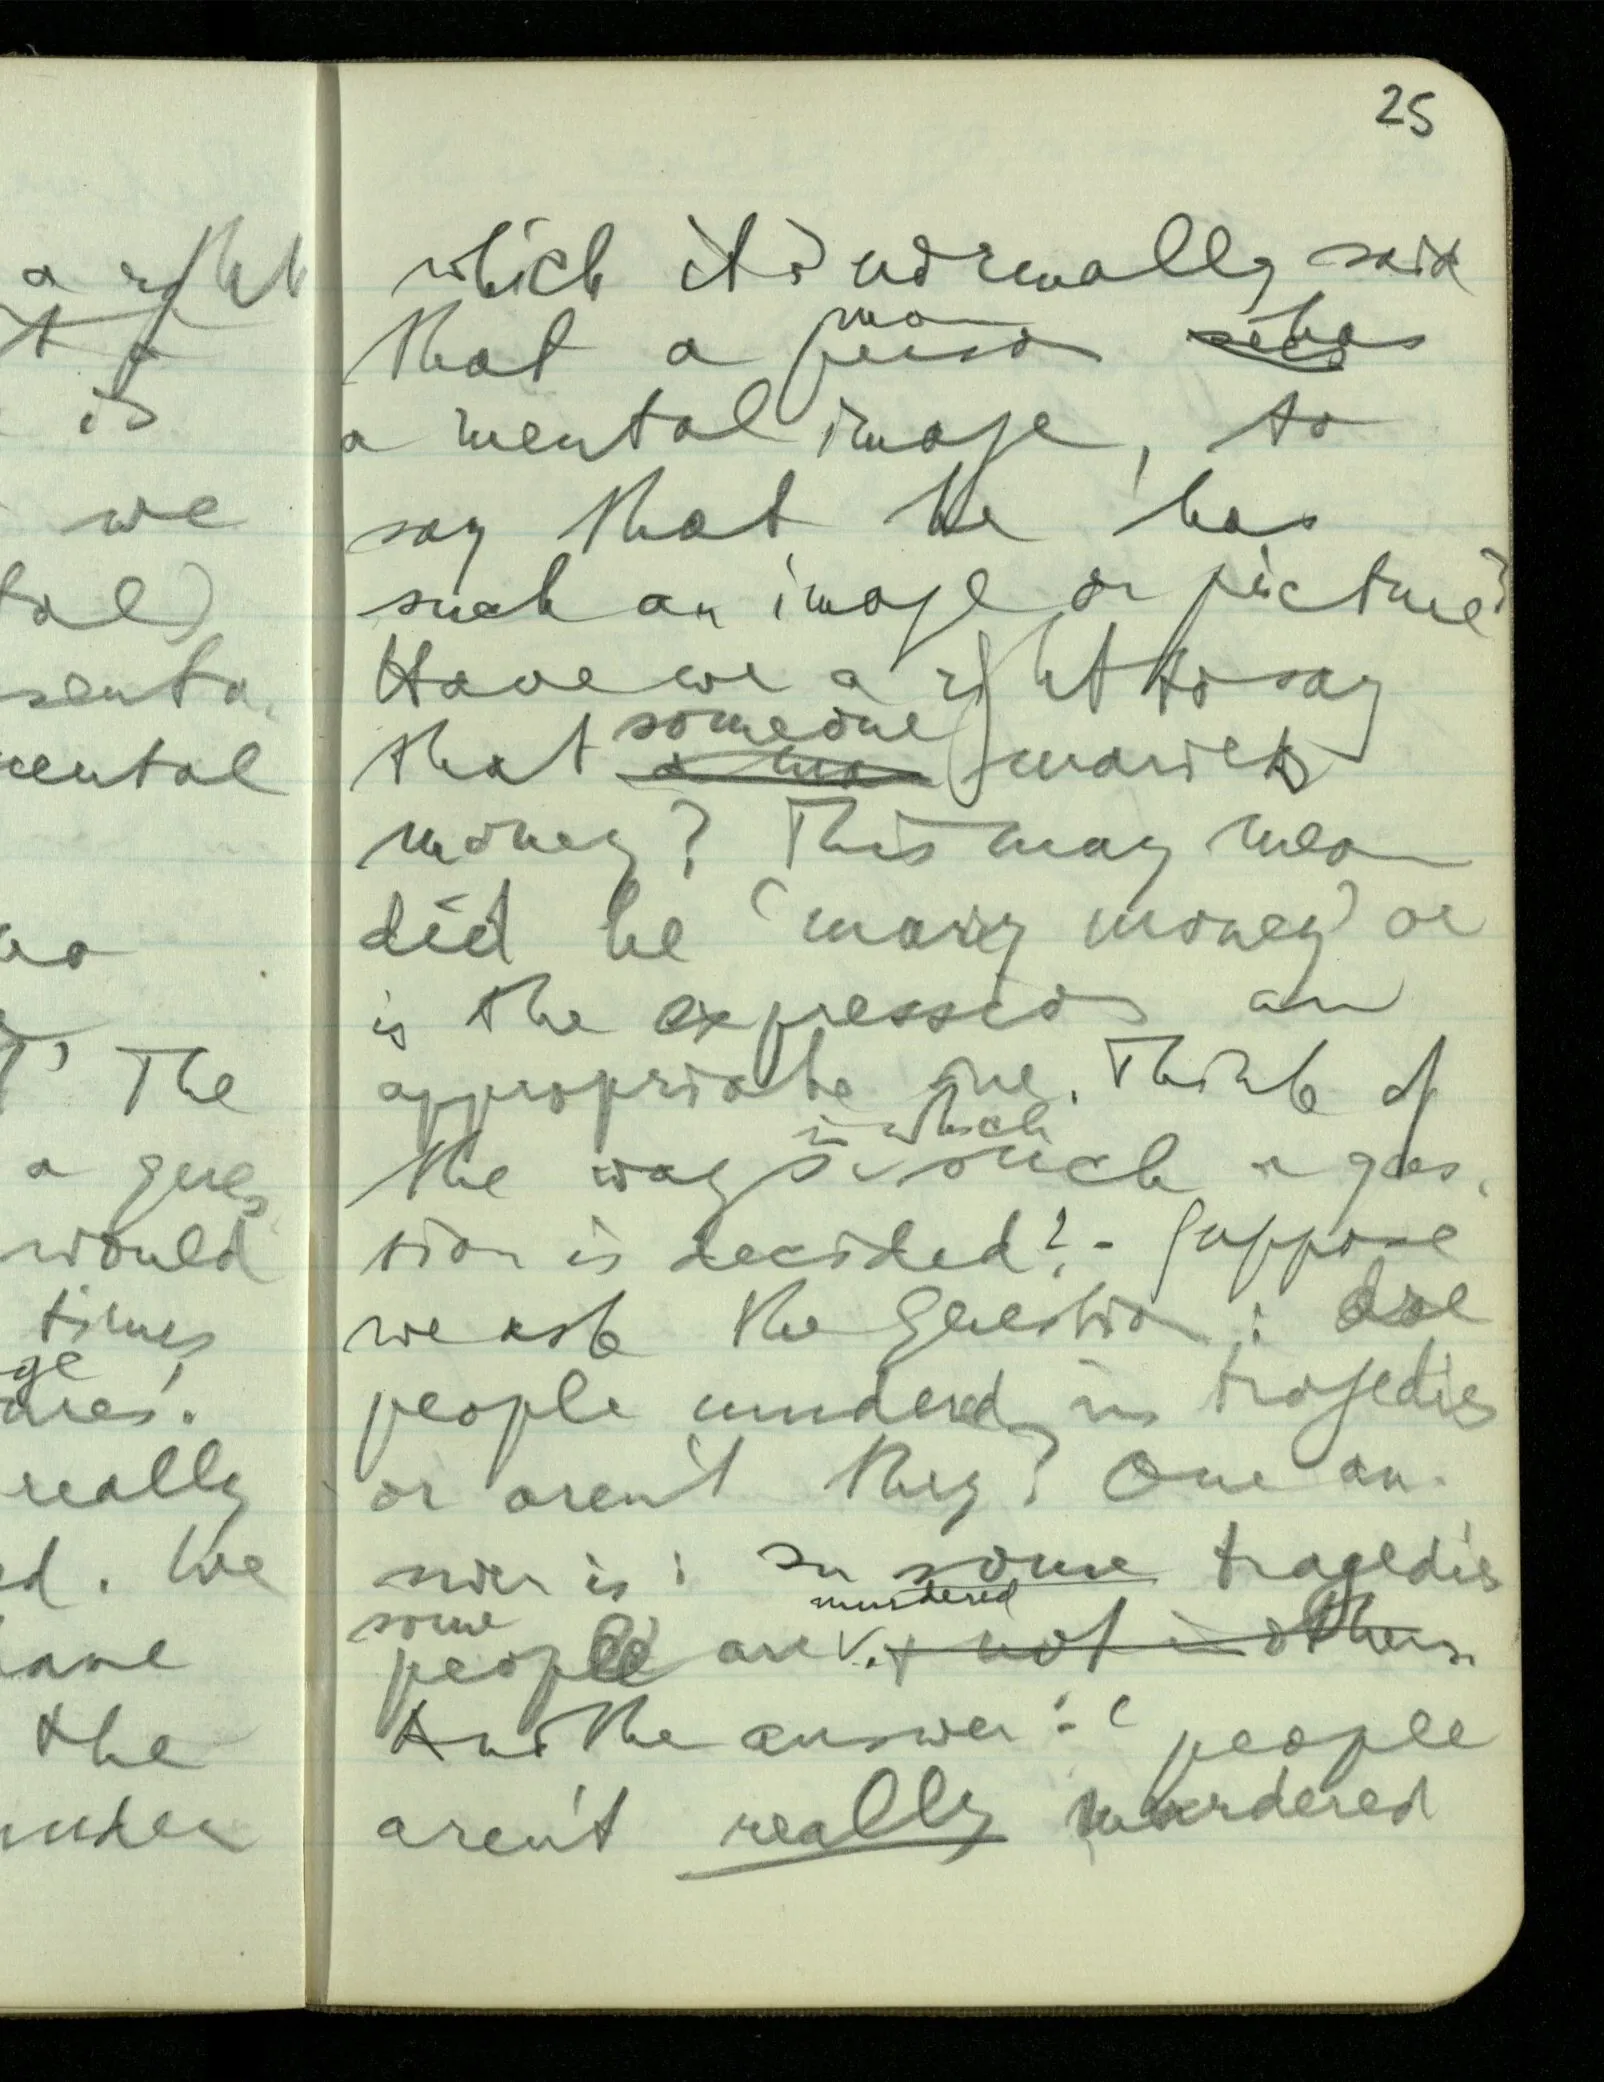 25
a right
it
is
we
tal)
senta-
mental
The
a ques
would
times
ge
ares'.
really
ed. We
have
the
under
which it is normally said
man
that a person sees has
a mental image, to
say that he 'has
such an image or picture'?
Have we a right to say
someone
that a man marries
money? This may mean
did he 'marry money' or
is the expression an
appropriate one. Think of
in which
the way such a ques-
tion is decided? - Suppose
we ask the question: are
people murdered in tragedies
or aren't they? One an-
swer is: In some tragedies
murdered
some
people are + not in others.
And the answer: - 'people
aren't really murdered